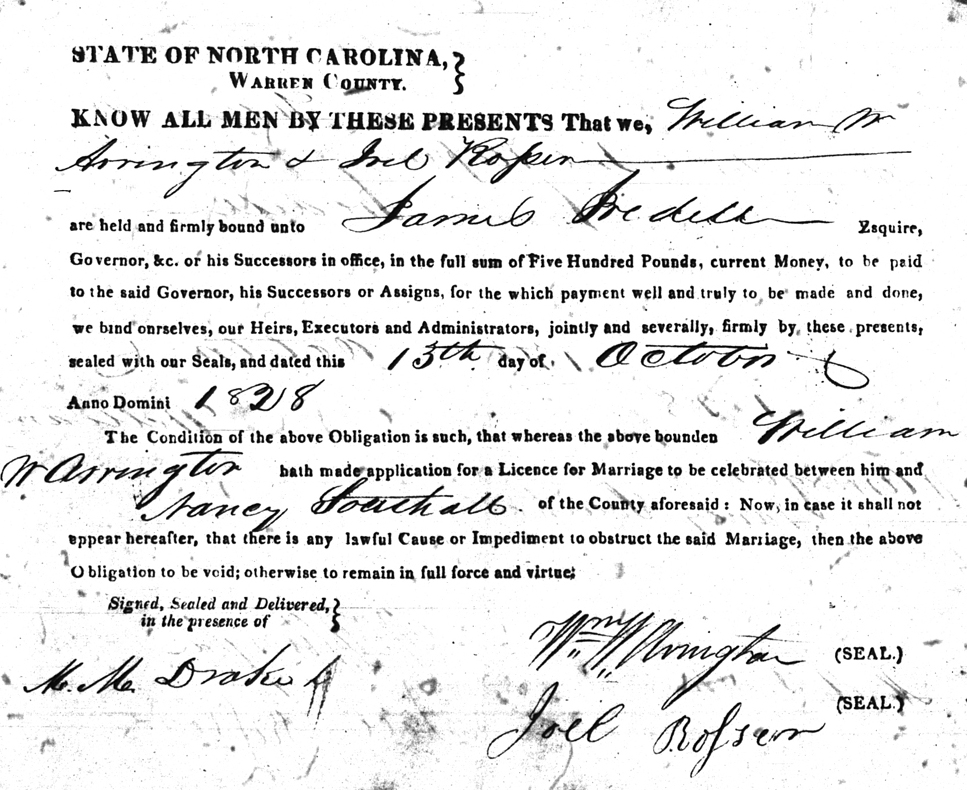 STATE OF NORTH CAROLINA,
WARREN COUNTY.
KNOW ALL MEN BY THESE PRESENTS That we, William W
Arrington & Joel Rosser
are held and firmly bound unto James Iredell Esquire,
Governor, &c. or his Successors in office, in the full sum of Five Hundred Pounds, current Money, to be paid
to the said Governor, his Successors or Assigns, for the which payment well and truly to be made and done,
we bind onrselves, our Heirs, Executors and Administrators, jointly and severally, firmly by these presents,
sealed with our Seals, and dated this 13th day of October
Anno Domini 1828
The Condition of the above Obligation is such, that whereas the above bounden William
W Arrington hath made application for a Licence for Marriage to be celebrated between him and
Nancy Southall of the County aforesaid: Now, in case it shall not
appear hereafter, that there is any lawful Cause or Impediment to obstruct the said Marriage, then the above
Obligation to be void; otherwise to remain in full force and virtue;
Signed, Sealed and Delivered,
in the presence of
Wm W Arrington (SEAL.)
M. M. Drake
Joel Rosser (SEAL.)